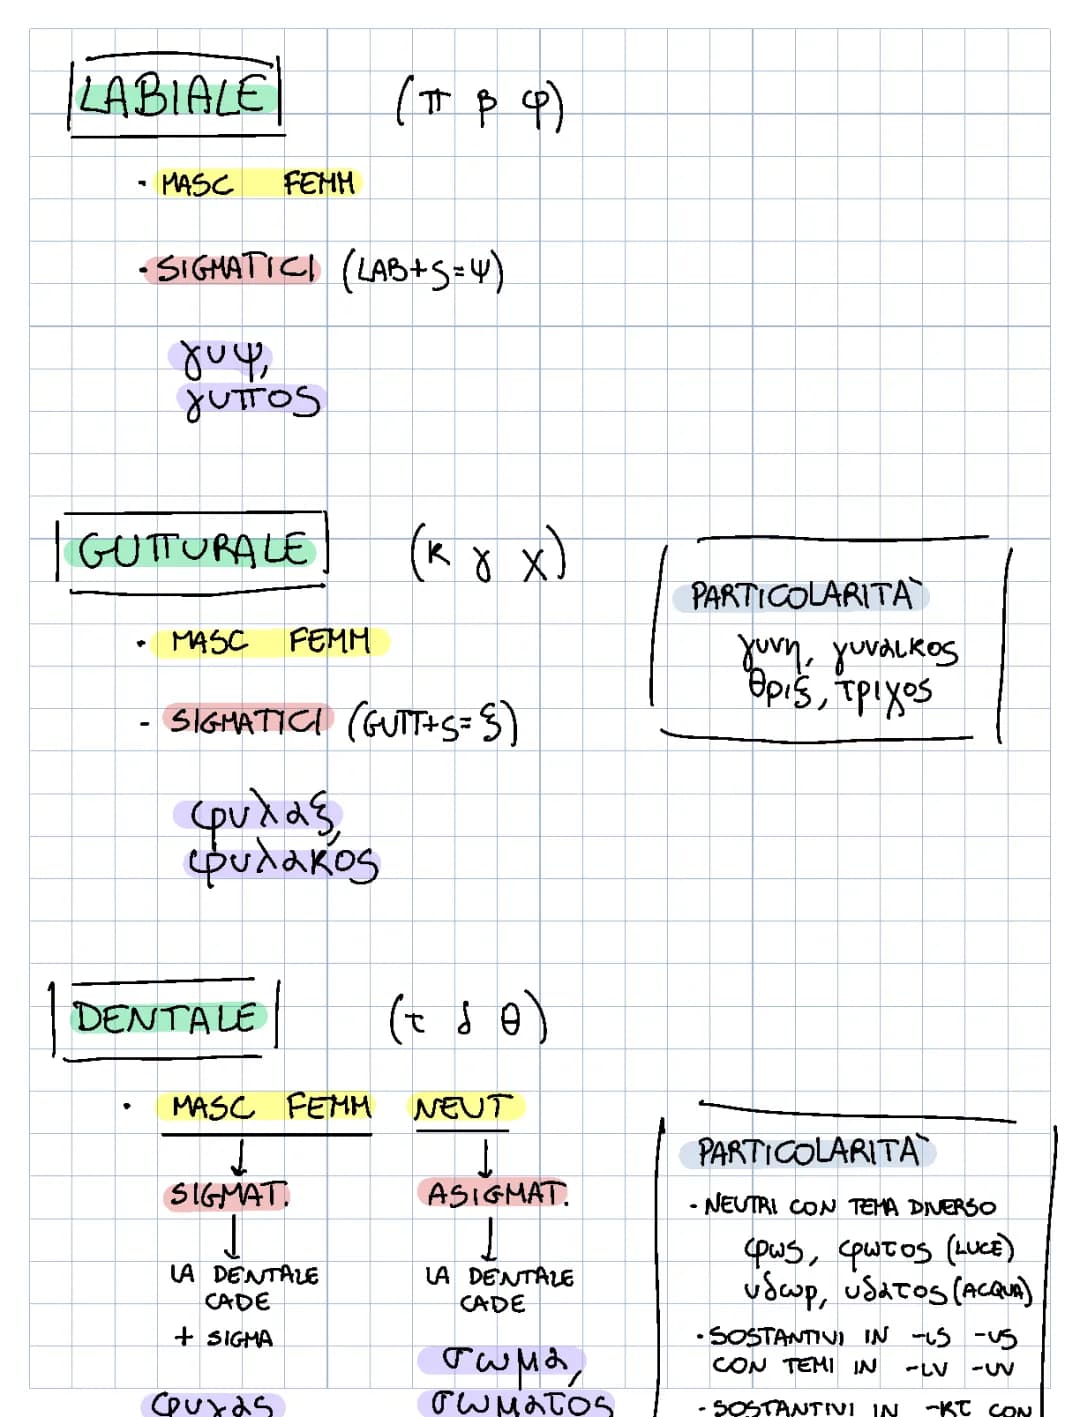 LABIALE (π β φ)
· MASC FEMM
· SIGMATICI (LAB+S=Ψ)
γυψ,
γυπος
GUTTURALE (κ γ χ)
· MASC FEMM
- SIGMATICI (GUTT+S=ξ)
φυλαξ,
φυλακος
PARTICOLARITÀ
γυνη, γυναικος
θριξ, τριχος
DENTALE (τ δ θ)
· MASC FEMM NEUT
↓ ↓
SIGMAT. ASIGMAT.
↓ ↓
LA DENTALE LA DENTALE
CADE CADE
+ SIGMA
σωμα,
φυγας σωματος
PARTICOLARITÀ
· NEUTRI CON TEMA DIVERSO
φως, φωτος (LUCE)
υδωρ, υδατος (ACQUA)
· SOSTANTIVI IN -ις -υς
CON TEMI IN -ιν -υν
· SOSTANTIVI IN -κτ CON